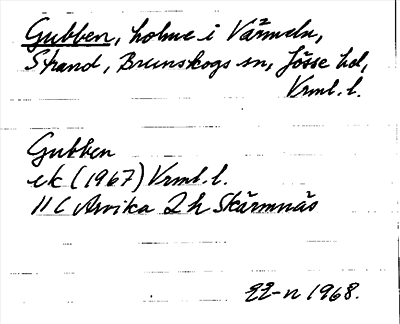 Gubben, holme i Värmeln,
Strand, Brunskogs sn, Jösse hd,
Vrml. l.
Gubben
ek (1967) Vrml. l.
11 C Arvika 2 h Skärmnäs
1968.